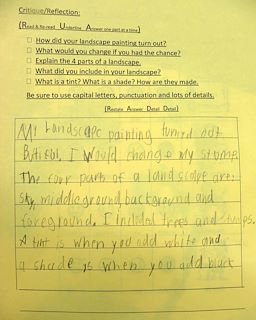 Critique/Reflection:
(Read & Re-read Underline Answer one part at a time)
How did your landscape painting turn out?
What would you change if you had the chance?
Explain the 4 parts of a landscape.
What did you include in your landscape?
What is a tint? What is a shade? How are they made.
Be sure to use capital letters, punctuation and lots of details.
(Restate Answer Detail Detail)
My Landscape painting turned out
I would change my stump.
The four parts of a landscape are:
sky, middleground, background and
foreground. I included trees and stumps.
A tint is when you add white and
a shade is when you add black